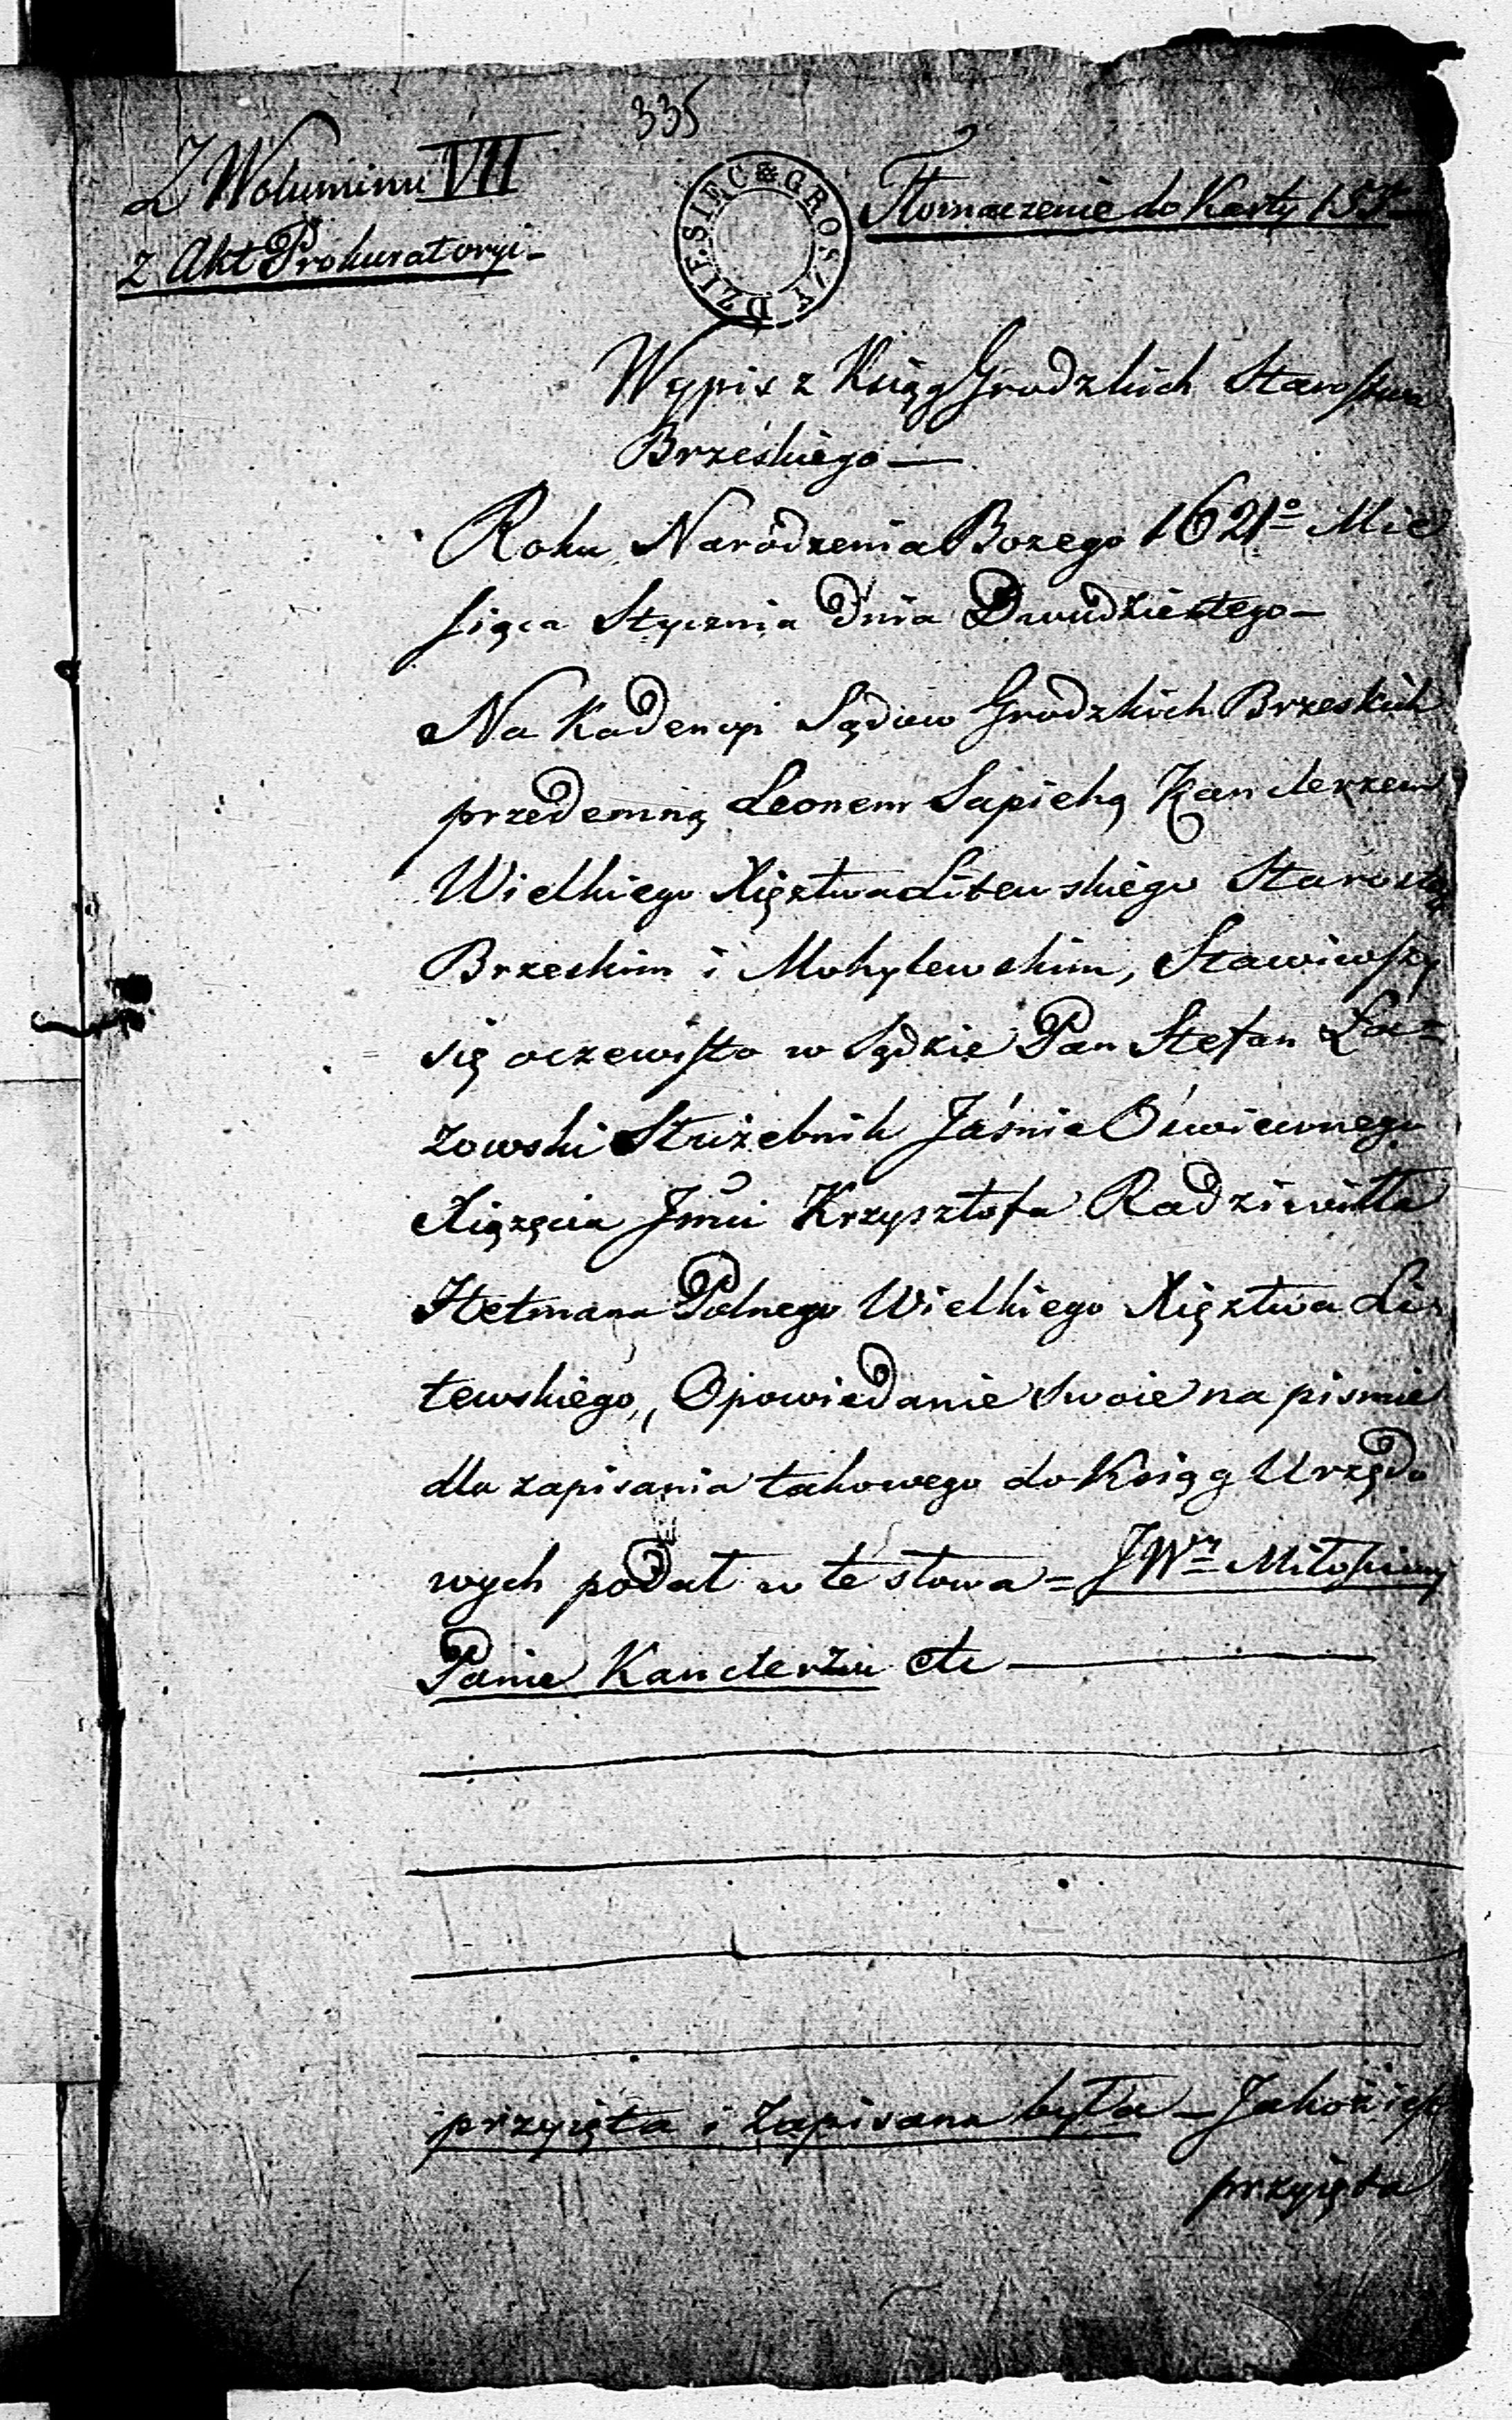 335
Z Woluminu VII
z Akt Prokuratoryi -
DZIESIĘC GROSZY
Tłomaczenie do Karty
Wypis z Ksiąg Grodzkich Starostwa
Brzeskiego —
Roku Narodzenia Bozego 1621º Mie
siąca Stycznia dnia Dwudziestego —
Na Kadencyi Sądów Grodzkich Brzeskich
przedemną Leonem Sapiehą Kanclerzem
Wielkiego Xięztwa Litewskiego Starostą
Brzeskim i Mohylewskim, Stawiwszy
się oczewisto w Sądzie Pan Stefan Ła=
zowski Służebnik Jaśnie Oświeconego
Xiążęcia Jmci Krzysztofa Radziwiłła
Hetmana Polnego Wielkiego Xięztwa Li
tewskiego, Opowiedanie swoie na pismie
dla zapisania takowego do Ksiąg Urzędo
wych podał w te słowa = JWny Miłościwy
Panie Kanclerzu etc —
przyięta i zapisana była — Jakoż iest
przyięta